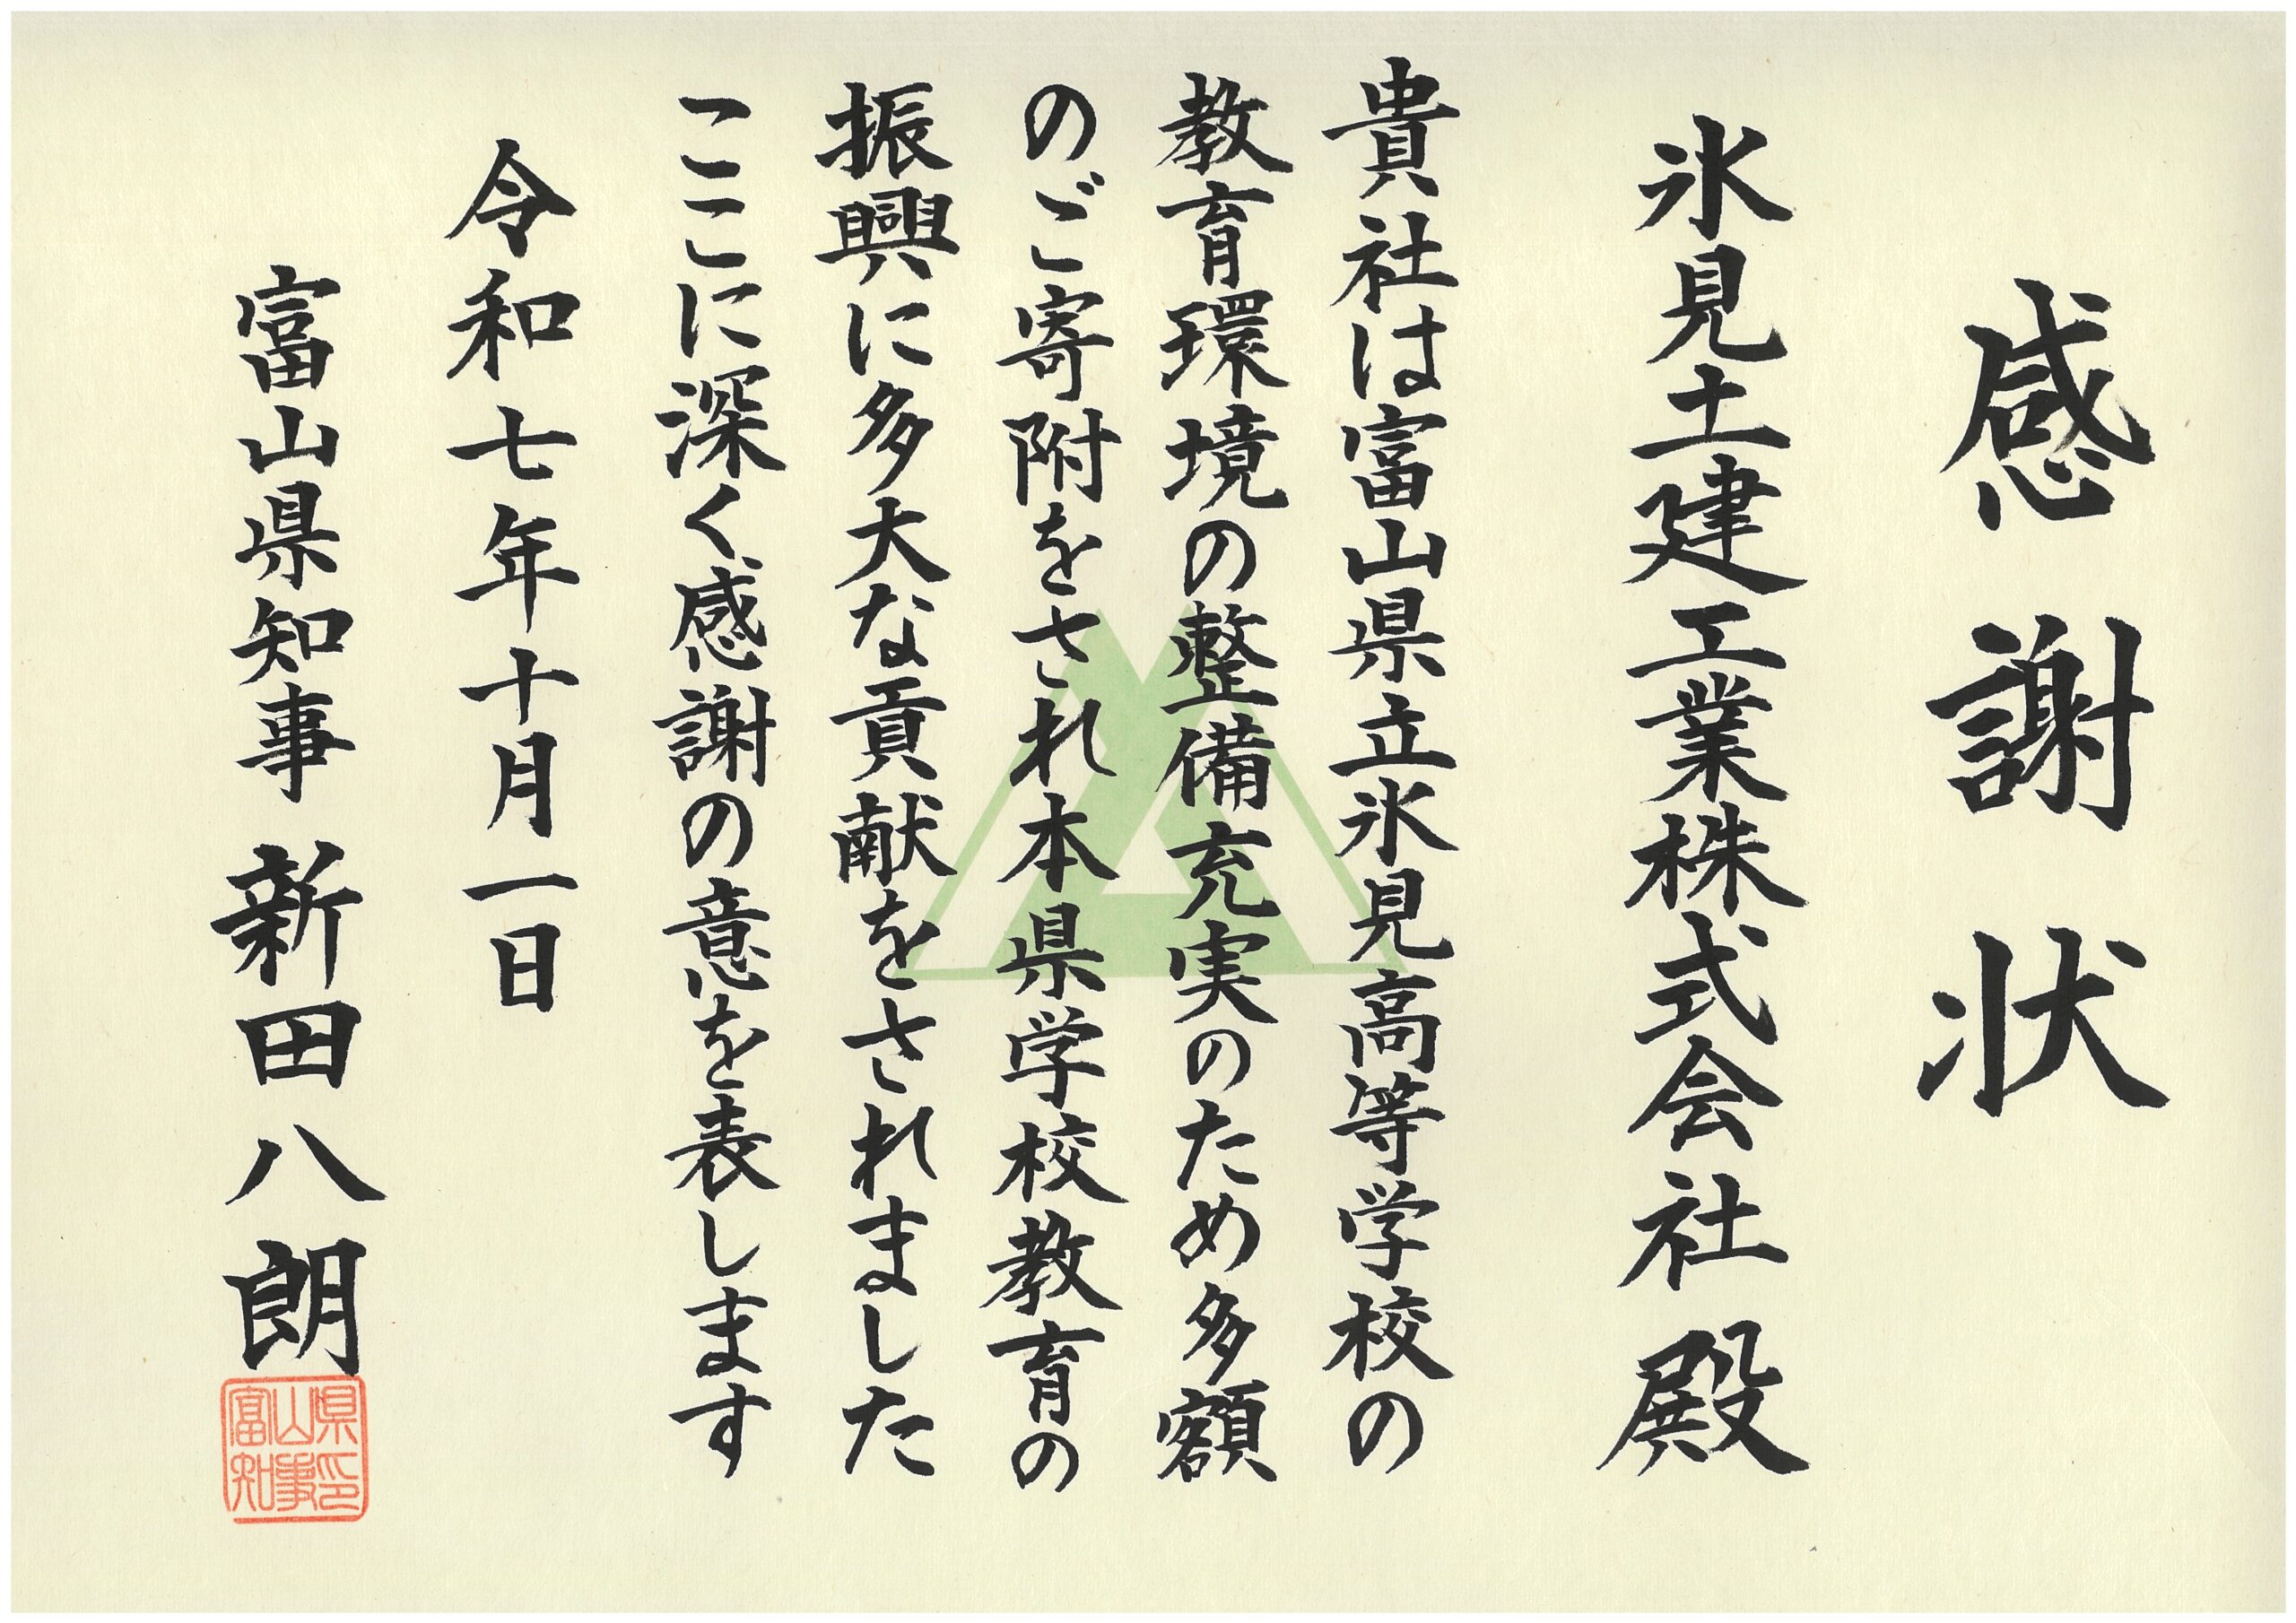 感謝状
氷見土建工業株式会社 殿
貴社は富山県立氷見高等学校の
教育環境の整備充実のため多額
のご寄附をされ本県学校教育の
振興に多大な貢献をされました
ここに深く感謝の意を表します
令和七年十月一日
富山県知事 新田八朗
富山県
知事印